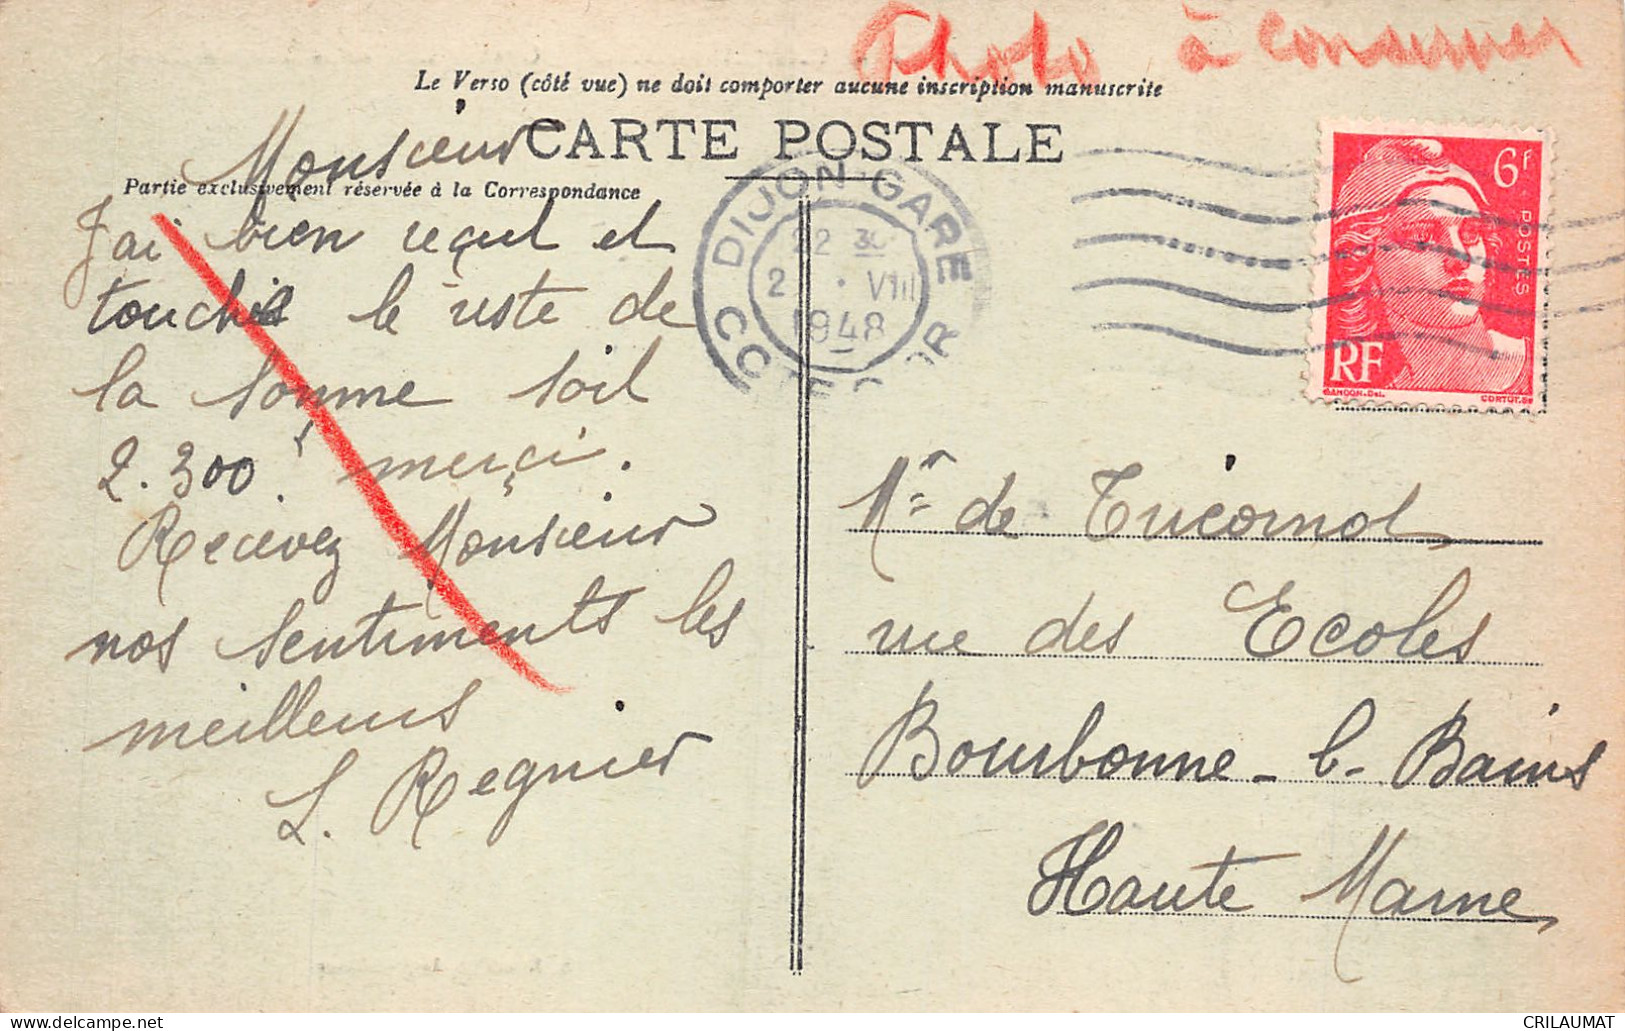 Photo à conserver
Le Verso (côté vue) ne doit comporter aucune inscription manuscrite
CARTE POSTALE
Partie exclusivement réservée à la Correspondance
Monsieur
J'ai bien reçut et
touché le reste de
la somme soit
2.300f merci.
Recevez Monsieur
nos sentiments les
meilleurs
L. Regnier
DIJON-GARE
22 30
2 . VIII
1948
COTE D'OR
6f
POSTES
RF
GANDON.Del.
CORTOT.sc
Mr de Tricornot
rue des Ecoles
Bourbonne-l-Bains
Haute Marne
CRILAUMAT